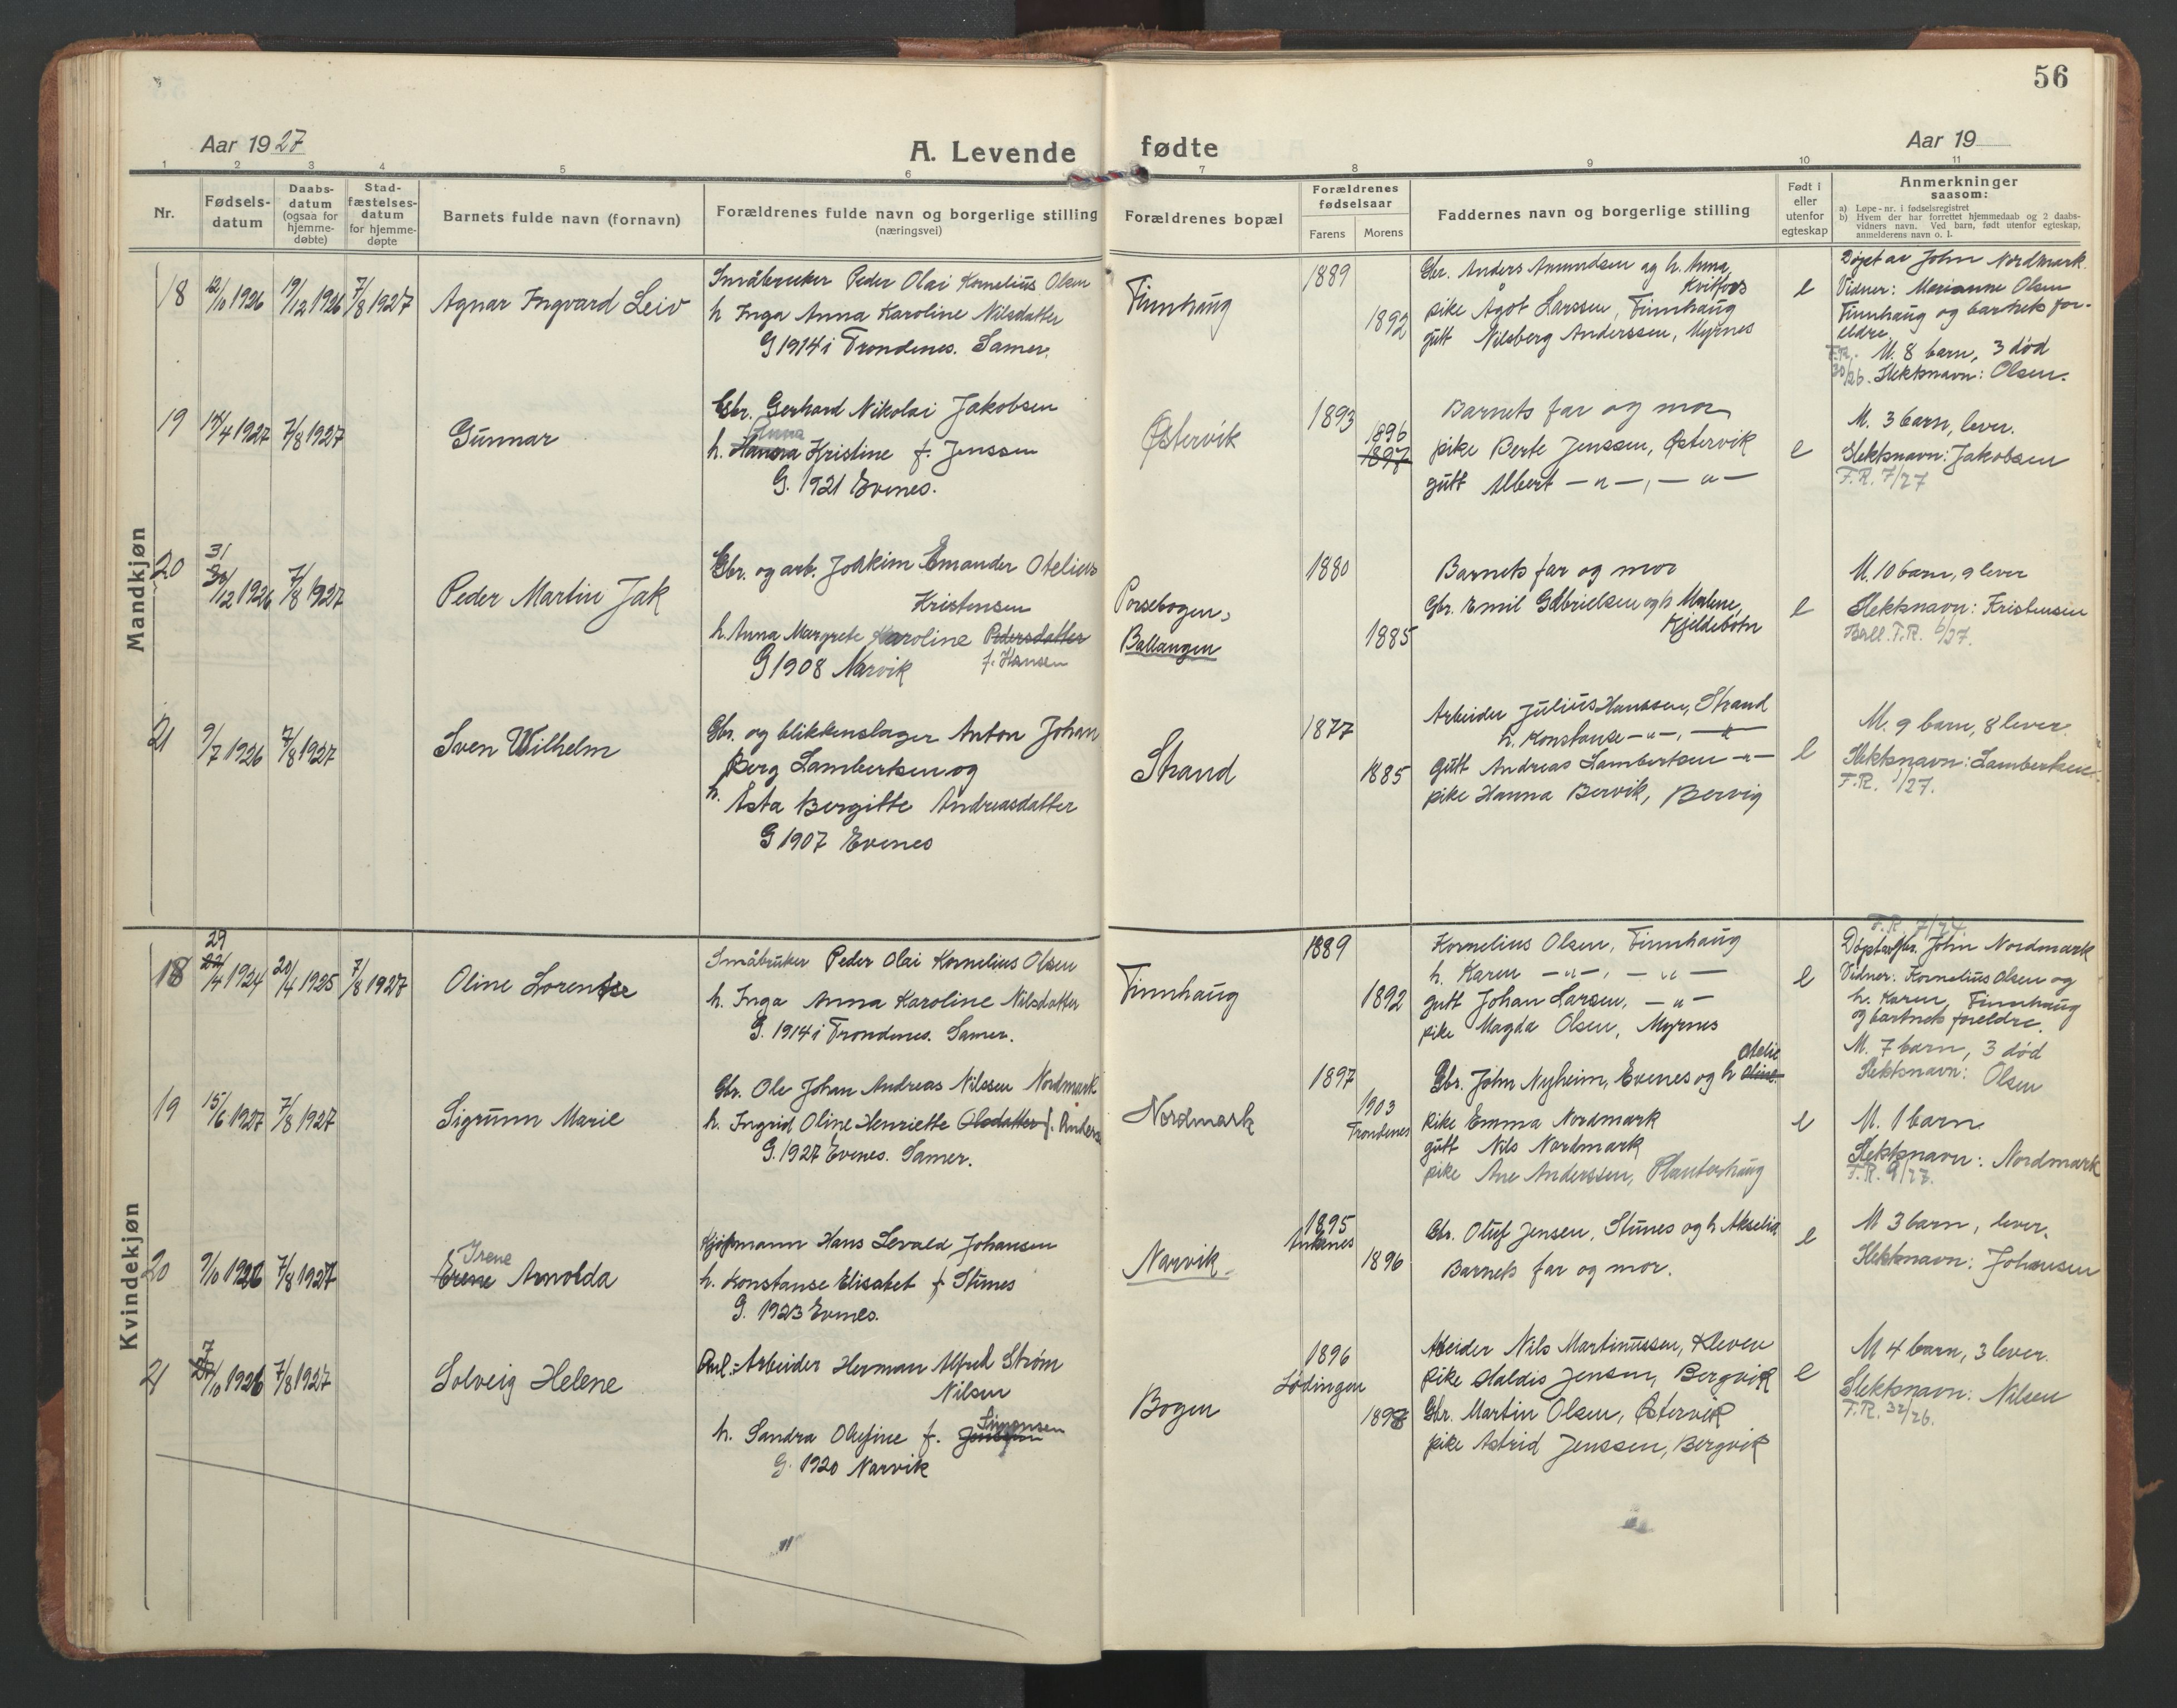 56
Aar 1927
A. Levende fødte
Aar 19
1 2 3 4 5 6 7 8 9 10 11
Nr.
Fødsels-
datum
Daabs-
datum
(ogsaa for
hjemme-
døbte)
Stad-
fæstelses-
datum
for hjemme-
døpte
Barnets fulde navn (fornavn)
Forældrenes fulde navn og borgerlige stilling
(næringsvei)
Forældrenes bopæl
Forældrenes
fødselsaar
Farens Morens
Faddernes navn og borgerlige stilling
Født i
eller
utenfor
egteskap
Anmerkninger
saasom:
a) Løpe-nr. i fødselsregistret
b) Hvem der har forrettet hjemmedaab og 2 daabs-
vidners navn. Ved barn, født utenfor egteskap,
anmelderens navn o. l.
Mandkjøn
18 12/10 1926 19/12 1926 7/8 1927 Agnar Ingvard Leiv
Småbruker Peder Olai Kornelius Olsen
h Inga Anna Karoline Nilsdatter
G 1914 i Trondenes. Samer.
Finnhaug
1889
1892
Gbr. Anders Amundsen og h. Anna,
Kvitfors
pike Ågot Larssen, Finnhaug
gutt Nilsberg Anderssen, Myrnes
e
Døpt av John Nordmark.
Vidner: Marianne Olsen
Finnhaug og barnets for-
eldre.
F.R. M. 8 barn, 3 død
30/26. Slektsnavn: Olsen.
19 14/4 1927 7/8 1927 Gunnar
Gbr. Gerhard Nikolai Jakobsen
Anna
h. Hanna Kristine f. Jenssen
G. 1921 Evenes.
Østervik
1893
1896
1897
Barnets far og mor
pike Berte Jenssen, Østervik
gutt Albert — " —, — " —
e
M. 3 barn, lever.
Slektsnavn: Jakobsen
F.R. 7/27
20 31
30/12 1926 7/8 1927 Peder Martin Jak
Gbr. og arb. Joakim Emander Otelius
Kristensen
h. Anna Margrete Karoline Pedersdatter
G 1908 Narvik f. Hansen
Porsebogen,
Ballangen
1880
1885
Barnets far og mor
Gbr. Emil Gabrielsen og h Malene,
Kjeldebotn
e
M. 10 barn, 9 lever
Slektsnavn: Kristensen
Ball. F.R. 6/27.
21 9/7 1926 7/8 1927 Sven Wilhelm
Gbr. og blikkenslager Anton Johan
Berg Lambertsen og
h. Asta Bergitte Andreasdatter
G 1907 Evenes
Strand
1877
1885
Arbeider Julius Hanssen, Strand
h. Konstanse — " —, — " —
gutt Andreas Lambertsen — " —
pike Hanna Bervik, Bervig
e
M. 9 barn, 8 lever.
Slektsnavn: Lambertsen.
F.R. 1/27.
Kvindekjøn
18 29
22/4 1924 20/4 1925 7/8 1927 Oline Lorentse
Småbruker Peder Olai Kornelius Olsen
h. Inga Anna Karoline Nilsdatter
G. 1914 i Trondenes. Samer.
Finnhaug
1889
1892
Kornelius Olsen, Finnhaug
h. Karen — " —, — " —
gutt Johan Larsen, — " —
pike Magda Olsen, Myrnes
e
F.R. 7/24.
Døpt av Gbr. John Nordmark
Vidner: Kornelius Olsen og
h. Karen, Finnhaug
og barnets foreldre.
M. 7 barn, 3 død
Slektsnavn: Olsen
19 15/6 1927 7/8 1927 Sigrunn Marie
Gbr. Ole Johan Andreas Nilssen Nordmark
h. Ingrid Oline Henriette Olsdatter f. Anders
G. 1927 Evenes. Samer.
Nordmark
1897
1903
Trondenes
Otelie
Gbr. John Nyheim, Evenes og h Oline
pike Emma Nordmark
gutt Nils Nordmark
pike Ane Anderssen, Planterhaug
e
M. 1 barn
Slektsnavn: Nordmark
F.R. 9/27.
20 9/10 1926 7/8 1927 Irene
Erene Arnolda
Kjøpmann Hans Levald Johansen
h. Konstanse Elisabet f Stunes
G. 1923 Evenes.
Narvik
1895
Ankenes
1896
Gbr. Oluf Jensen, Stunes og h Akselia
Barnets far og mor.
e
M 3 barn, lever.
Slektsnavn: Johansen
21 7
27/10 1926 7/8 1927 Solveig Helene
Anl.-Arbeider Herman Alfred Strøm
Nilsen
Simonsen
h. Sandra Olufine f.
G. 1920 Narvik
Bogen
1896
Lødingen
1898
Arbeider Nils Martinussen, Kleven
pike Haldis Jensen, Bergvik
Gbr. Martin Olsen, Østervik
pike Astrid Jenssen, Bergvik
e
M 4 barn, 3 lever.
Slektsnavn: Nilsen
F.R. 32/26.